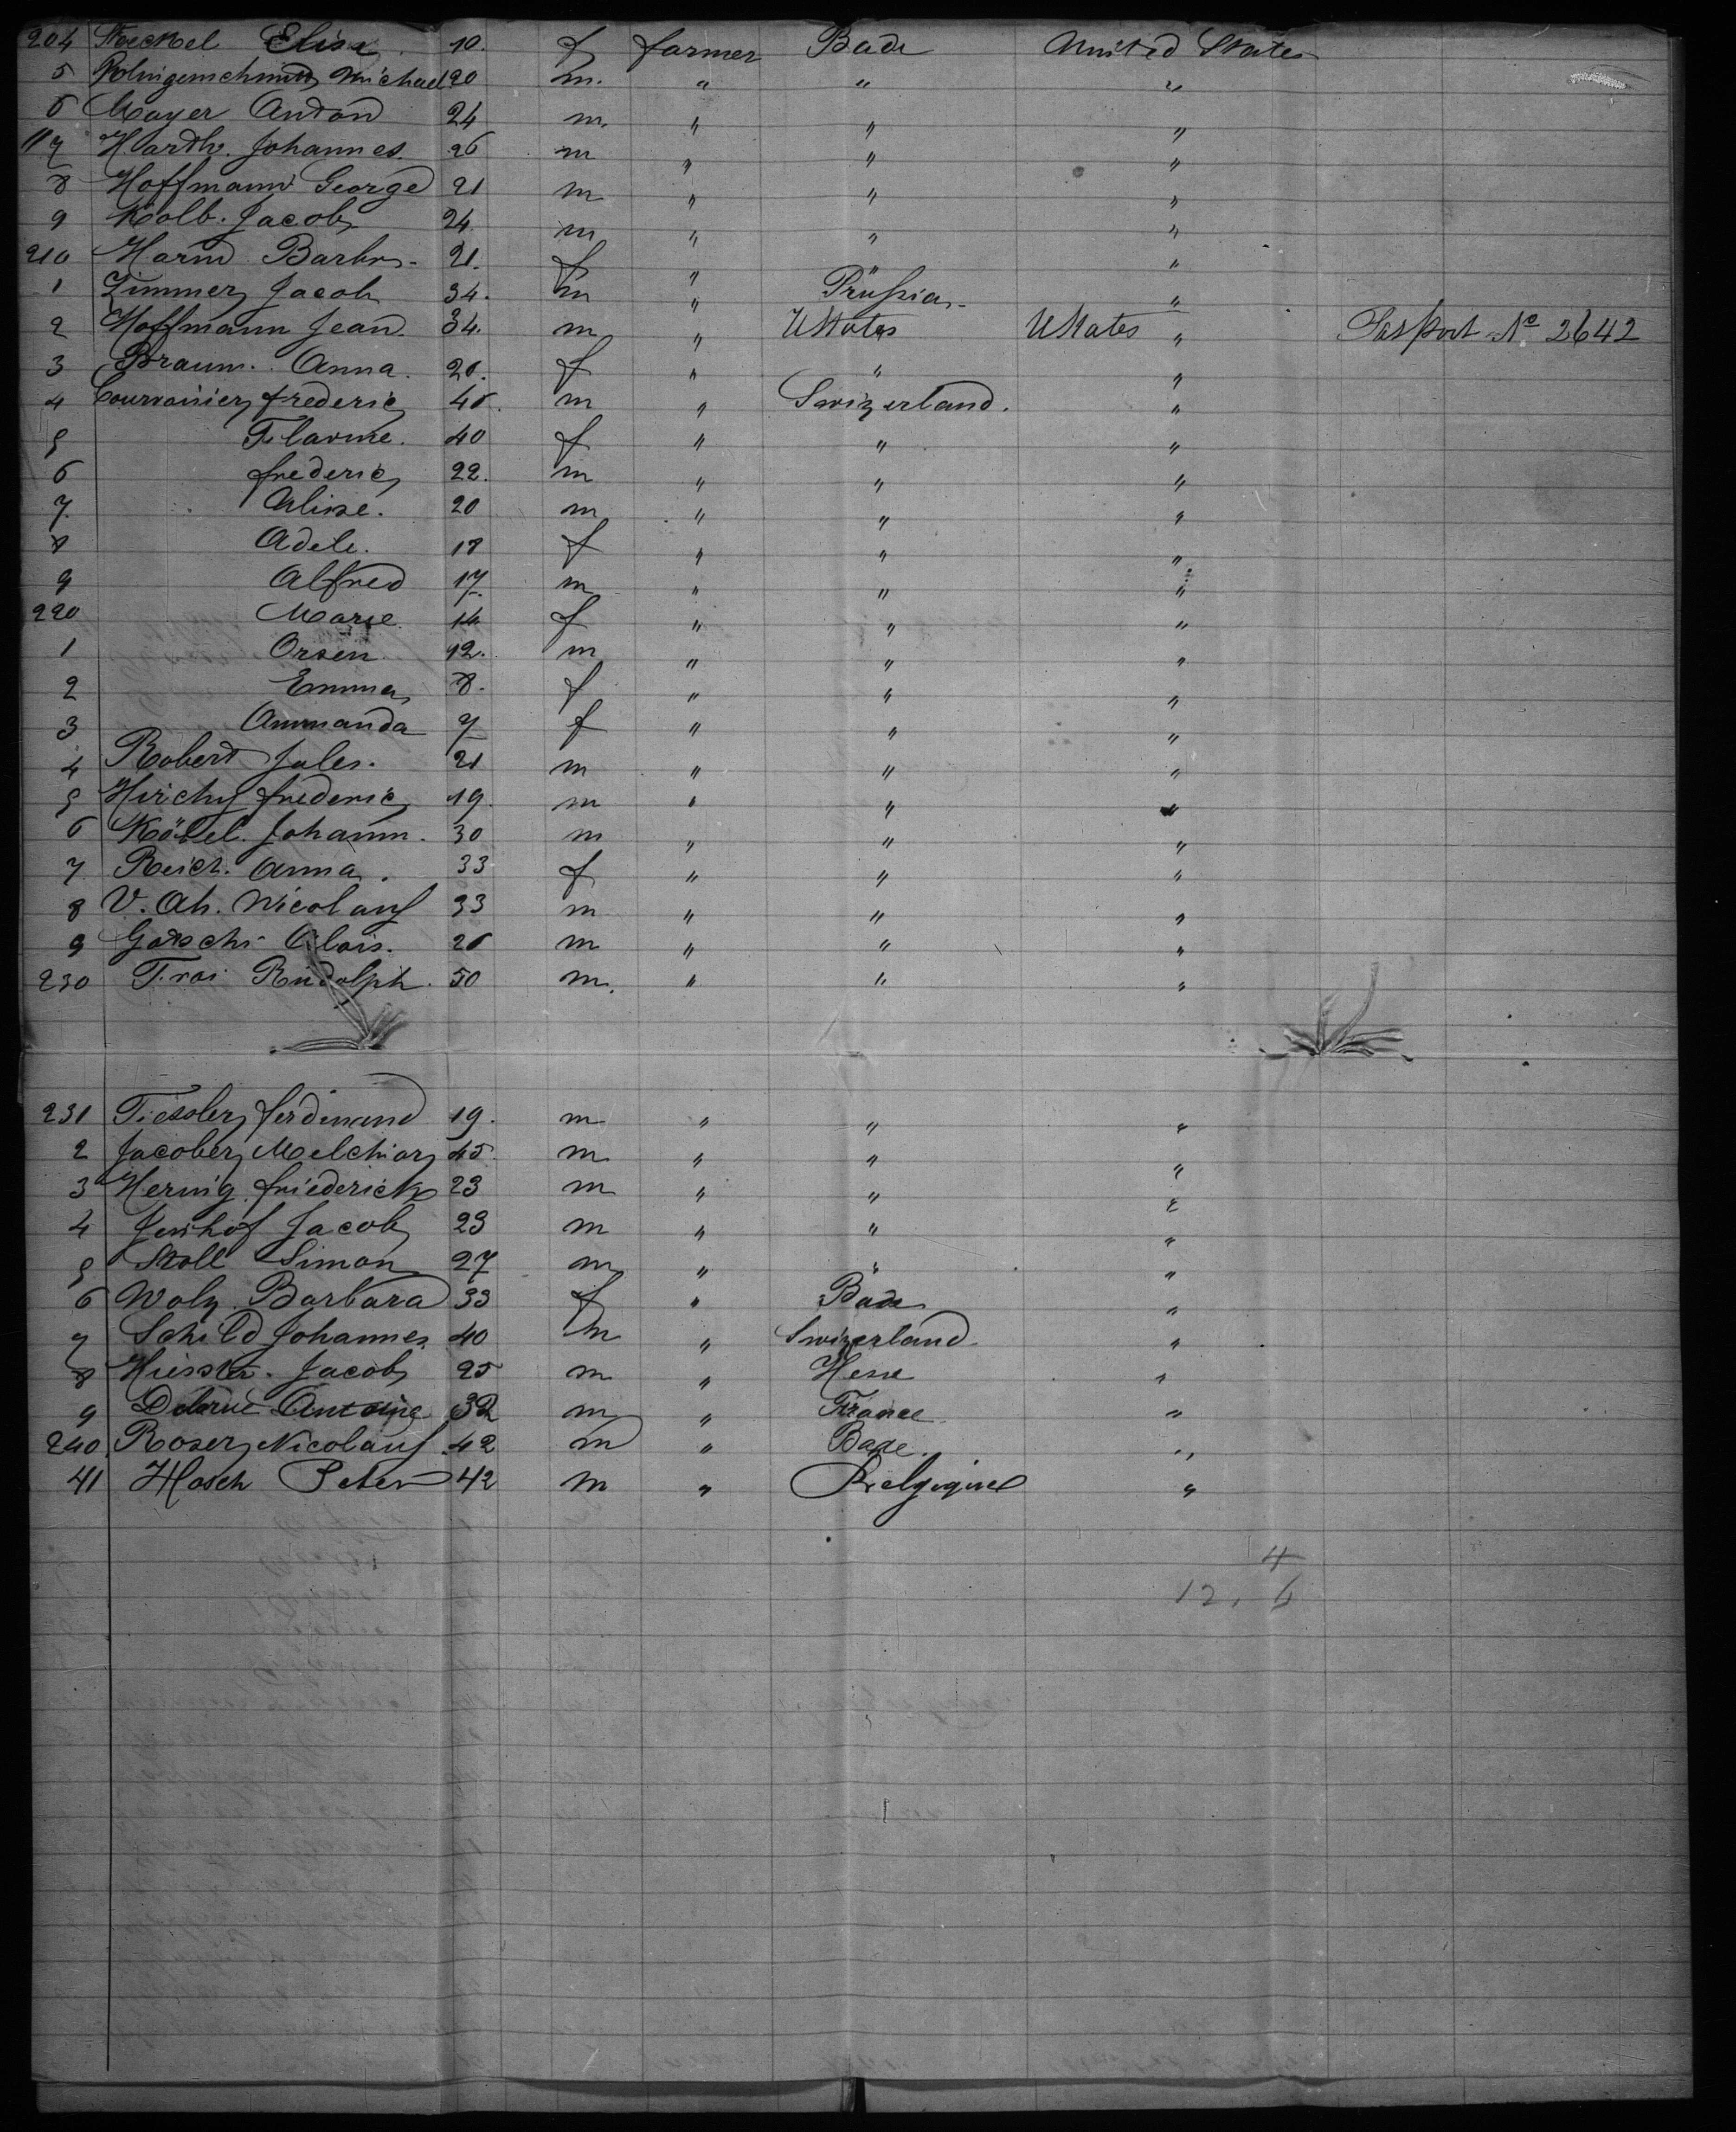 204 Stoeckel Elisa 10. f farmer Bade United States
5 Michael 20 m. " " "
6 Mayer Anton 24 m. " " "
7 Harth. Johannes. 26 m " " "
8 Hoffmann George 21 m " " "
9 Kolb. Jacob 24 m " " "
210 Barbr. 21. f " " "
1 Zimmer Jacob 34. m " Prußia. "
2 Hoffmann Jean. 34. m " UStates UStates " Passport No 2642
3 Braun. Anna. 20. f " " "
4 Courvoisier frederic m " Swizerland. "
5 40 f " " "
6 frederic 22. m " " "
7. 20 m " " "
8 Adele. 18 f " " "
9 Alfred 17. m " " "
220 Marie 14 f " " "
1 Orsen 12. m " " "
2 Emma 8. f " " "
3 Ammanda 7 f " " "
4 Robert Jules. 21 m " " "
5 Hirchy frederic 19. m " " "
6 Johann. 30 m " " "
7 Reich. Anna. 33 f " " "
8 V. Ah. Nicolaus 33 m " " "
9 Alois. 26 m " " "
230 Rudolph. 50 m. " " "
231 ferdinand 19. m " " "
2 Jacober Melchior 45. m " " "
3 friederick 23 m " " "
4 Jacob 23 m " " "
5 Stoll Simon 27 m " " "
6 Barbara 33 f " Bade "
7 Schild Johannes. 40 m " Swizerland "
8 Jacob 25 m " Hesse "
9 Antoine 32 m " France "
240 Roser Nicolaus 42 m " Bade. "
41 Hosch Peter 42 m " Belgique "
4
12. 6